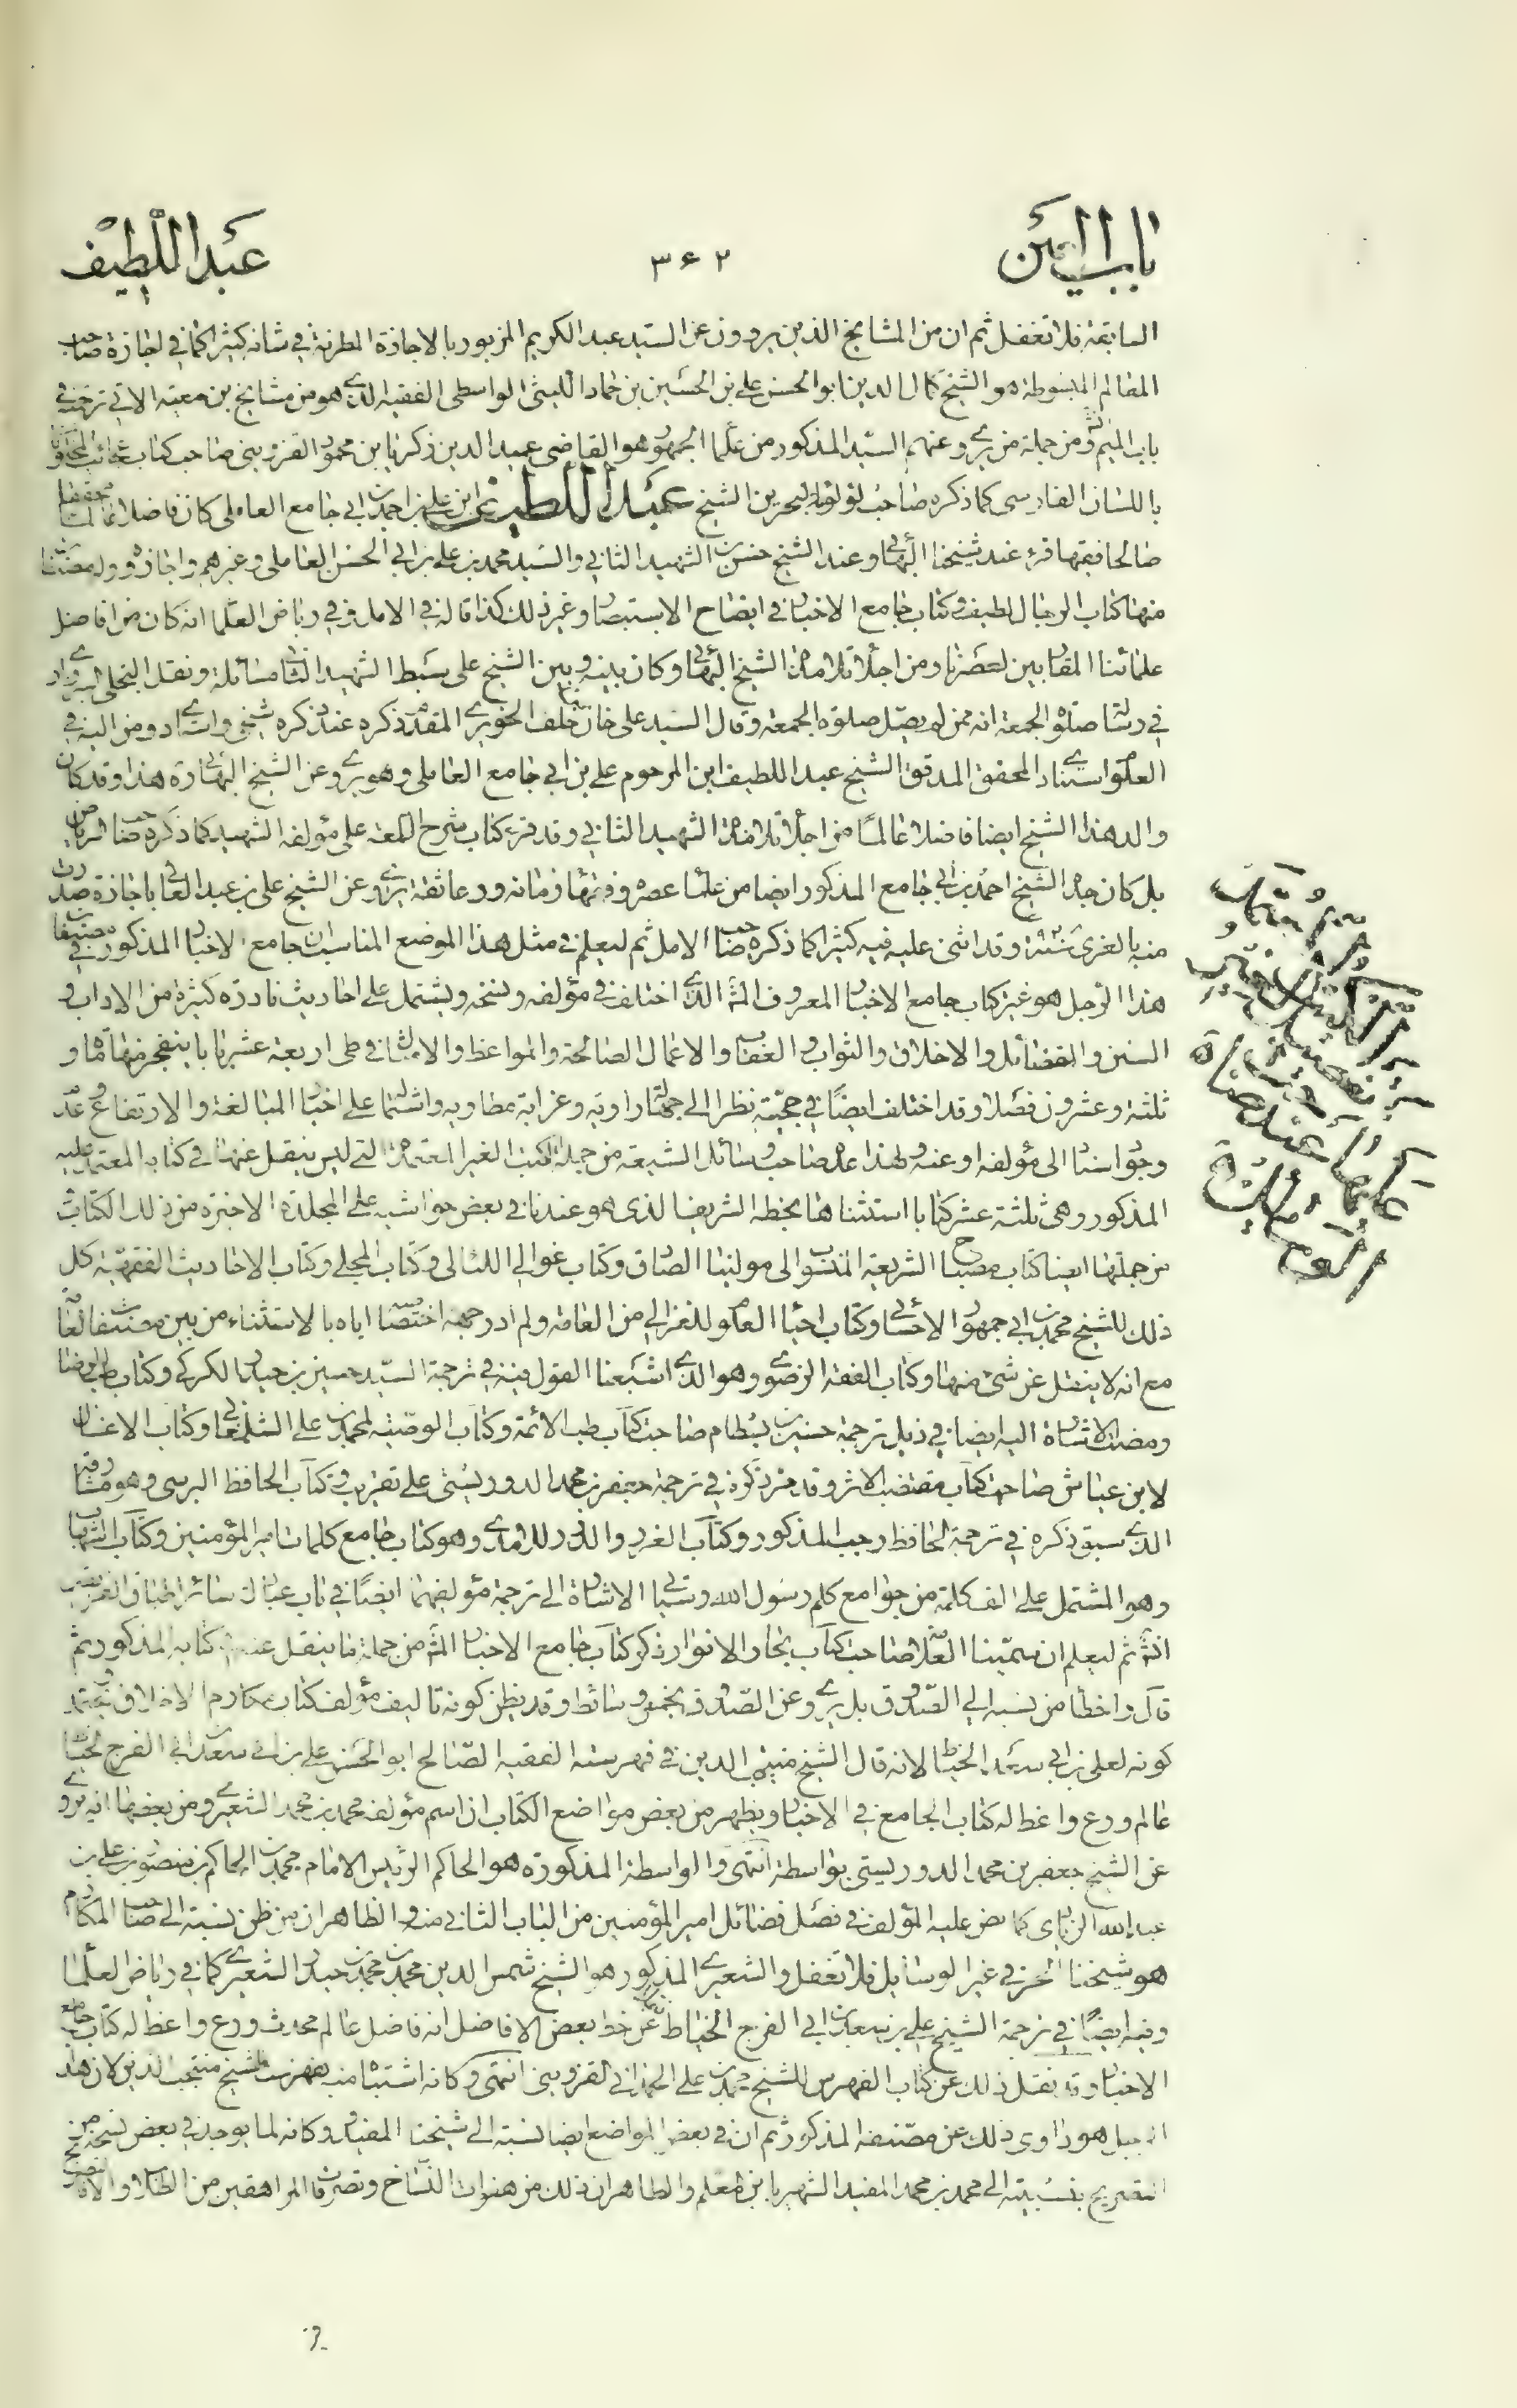 باب العين ۳۶۲ عبد اللطيف
السابقة فلا تغفل ثم ان من المشايخ الذين يروون عن السيد عبد الكريم المزبور بالاجازة المطرية في شانه كثيرا كما في اجازة صاحب
المعالم المبسوطة هو الشيخ كمال الدين ابو الحسن علي بن الحسين بن حماد الليثي الواسطي الفقيه الذي هو من مشايخ بن معية الاتي ترجمته في
باب الميم ومن جملة من يروي عنهم السيد المذكور من علماء الجمهور هو القاضي عميد الدين زكريا بن محمود القزويني صاحب كتاب عجائب المخلوقات
باللسان الفارسي كما ذكره صاحب لؤلؤة البحرين الشيخ عبد اللطيف ابن علي بن احمد بن ابي جامع العاملي كان فاضلا عالما محققا
صالحا فقيها قرء عند شيخنا البهائي وعند الشيخ حسن بن الشهيد الثاني والسيد محمد بن علي بن ابي الحسن العاملي وغيرهم واجازوه وله مصنفات
منها كتاب الرجال لطيف وكتاب جامع الاخبار في ايضاح الاستبصار وغير ذلك كذا قاله في الامل وفي رياض العلما انه كان من افاضل
علمائنا المقاربين لعصرنا ومن اجلاء تلامذة الشيخ البهائي وكان بينه وبين الشيخ علي سبط الشهيد الثاني مسائلة ونقل
في رسالة صلوة الجمعة انه ممن لم يصل صلوة الجمعة وقال السيد علي خان بن خلف الحويزي المقدم ذكره عند ذكره شيخي واستادي ومن اليه في
العلوم استنادي المحقق المدقق الشيخ عبد اللطيف ابن المرحوم علي بن ابي جامع العاملي وهو يروي عن الشيخ البهائي ره هذا وقد كان
والد هذا الشيخ ايضا فاضلا عالما من اجلاء تلامذة الشهيد الثاني وقد قرء كتاب شرح اللمعة على مؤلفه الشهيد كما ذكره صاحب الرياض
بل كان جده الشيخ احمد بن ابي جامع المذكور ايضا من علماء عصره وفقهاء زمانه ورعا ثقة يروي عن الشيخ علي بن عبد العالي باجازة صدرت
منه بالغري سنة ۹۲۸ وقد اثنى عليه فيه كثيرا كما ذكره صاحب الامل ثم ليعلم في مثل هذا الموضع المناسب ان جامع الاخبار المذكور في مصنفات
هذا الرجل هو غير كتاب جامع الاخبار المعروف الذي اختلف في مؤلفه ونسخه ويشتمل على احاديث نادرة كثيرة من الاداب و
السنن والفضائل والاخلاق والثواب والعقاب والاعمال الصالحة والمواعظ والامثال في طي اربعة عشر بابا ينفجر منها مأة و
ثلثة وعشرون فصلا وقد اختلف ايضا في حجيته نظرا الى جهالة راويه وغرابة مطاويه واشتماله على اخبار المبالغة والارتفاع وعدم
وجود اسناد الى مؤلفه او عنه ولهذا عده صاحب وسائل الشيعة من جملة الكتب الغير المعتمدة التي ليس ينقل عنها في كتابه المعتمد عليه
المذكور وهي ثلثة عشر كتابا استثناها بخطه الشريف الذي هو عندنا في بعض حواشيه على المجلدة الاخيرة من ذلك الكتاب
من جملتها ايضا كتاب مصباح الشريعة المنسوب الى مولينا الصادق وكتاب غوالي اللئالي وكتاب المجلي وكتاب الاحاديث الفقهية كل
ذلك للشيخ محمد بن ابي جمهور الاحسائي وكتاب احياء العلوم للغزالي من العامة ولم ادر وجه اختصاصه اياه بالاستثناء من بين مصنفات العامة
مع انه لا ينقل عن شيء منها وكتاب الفقه الرضوي وهو الذي اشبعنا القول فيه في ترجمة السيد حسين بن حيدر الكركي وكتاب طب الرضا
ومضت الاشارة اليه ايضا في ذيل ترجمة حسين بن بسطام صاحب كتاب طب الائمة وكتاب الوصية لمحمد بن علي الشلمغاني وكتاب الاغسال
لابن عياش صاحب كتاب مقتضب الاثر وقد مر ذكره في ترجمة جعفر بن محمد الدوريستي على تقريب وكتاب الحافظ البرسي وهو مشارقه
الذي سبق ذكره في ترجمة الحافظ رجب المذكور وكتاب الغرر والدرر للامدي وهو كتاب جامع كلمات امير المؤمنين وكتاب الشهاب
وهو المشتمل على الف كلمة من جوامع كلم رسول الله وستأتي الاشارة الى ترجمة مؤلفهما ايضا في باب عبائل سائر اطباق الفريقين
انشم ثم ليعلم ان سمينا العلامة صاحب كتاب بحار الانوار ذكر كتاب جامع الاخبار من جملة ما ينقل عنه في كتابه المذكور ثم
قال واخطا من نسبه الى الصدوق بل يروي عن الصدوق بخمس وسائط وقد يظن كونه تاليف مؤلف كتاب مكارم الاخلاق ويحتمل
كونه لعلي بن ابي سعد الخياط لانه قال الشيخ منتجب الدين في فهرسته الفقيه الصالح ابو الحسن علي بن ابي سعد بن ابي الفرج الخياط
عالم ورع واعظ له كتاب الجامع في الاخبار ويظهر من بعض مواضع الكتاب ان اسم مؤلفه محمد بن محمد الشعيري ومن بعضها انه يروي
عن الشيخ جعفر بن محمد الدوريستي بواسطة انتهى والواسطة المذكورة هو الحاكم الرئيس الامام محمد بن الحاكم بن منصور بن علي بن
عبد الله الزيادي كما نص عليه المؤلف في فصل فضائل امير المؤمنين من الباب الثاني منه والظاهر ان من ظن نسبته الى صاحب المكارم
هو شيخنا الحر في غير الوسايل فلا تغفل والشعيري المذكور هو الشيخ شمس الدين محمد بن محمد بن حيدر الشعيري كما في رياض العلما
وفيه ايضا في ترجمة الشيخ علي بن سعد بن ابي الفرج الخياط عن خط بعض الافاضل انه فاضل عالم محدث ورع واعظ له كتاب جامع
الاخبار وقد نقل ذلك عن كتاب الفهرس للشيخ محمد بن علي الحمداني القزويني انتهى وكانه اشتباه منه بفهرست الشيخ منتجب الدين لان هذا
الرجل هو راوي ذلك عن مصنفه المذكور ثم ان في بعض المواضع ايضا نسبته الى شيخنا المفيد وكانه لما يوجد في بعض نسخه من
التصريح بنسبته الى محمد بن محمد المفيد الشهير بابن المعلم والظاهر ان ذلك من هفوات النساخ وتصرفات المراهقين من الطلاب